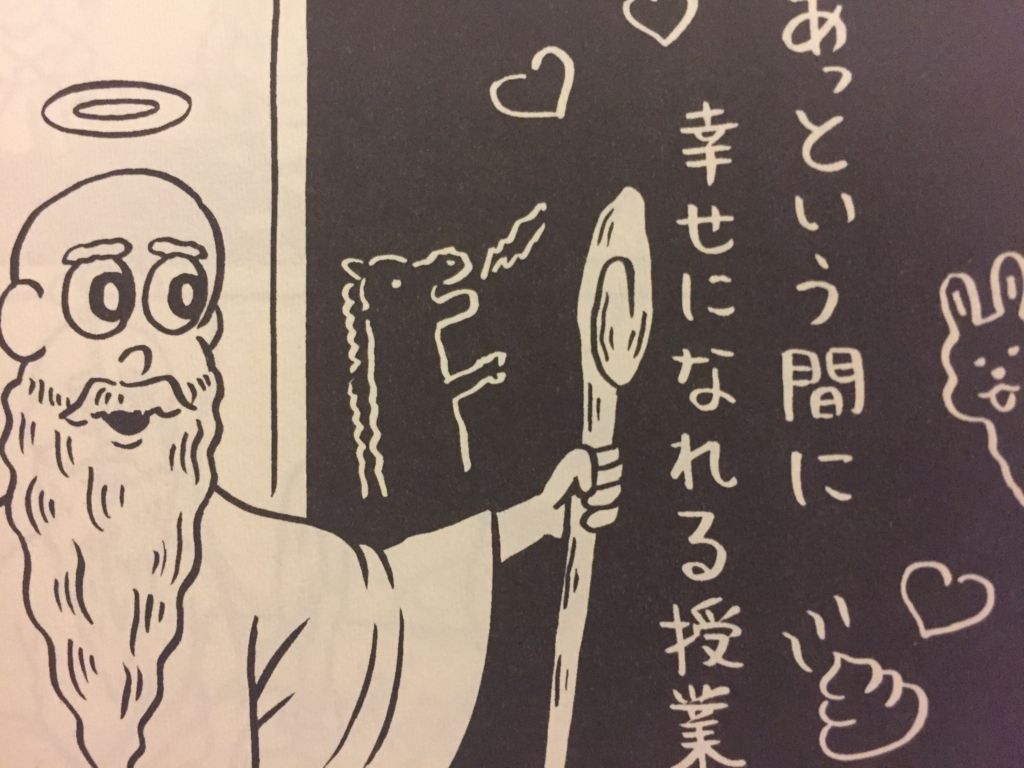 あっという間に
幸せになれる授業